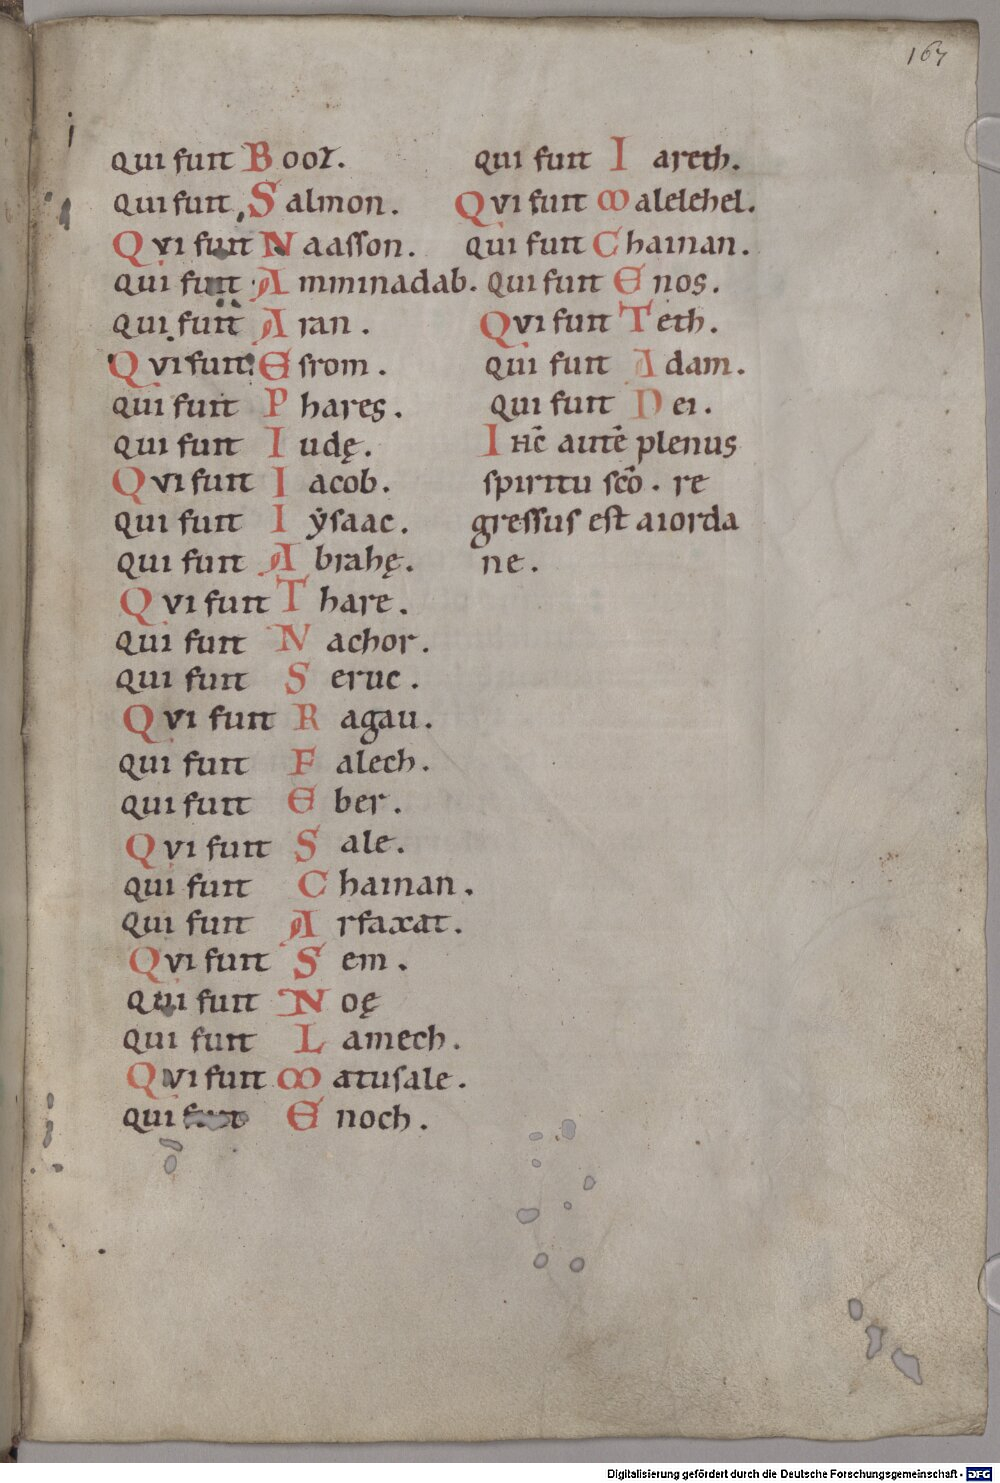 167
qui fuit Booz.
qui fuit Salmon.
Qui fuit Naasson.
qui fuit Amminadab.
qui fuit Aran.
Qui fuit Esrom.
qui fuit Phares.
qui fuit Iudę.
Qui fuit Iacob.
qui fuit Iẏsaac.
qui fuit Abrahę.
Qui fuit Thare.
qui fuit Nachor.
qui fuit Seruc.
Qui fuit Ragau.
qui fuit Falech.
qui fuit Eber.
Qui fuit Sale.
qui fuit Chainan.
qui fuit Arfaxat.
Qui fuit Sem.
qui fuit Noę
qui fuit Lamech.
Qui fuit Matusale.
qui fuit Enoch.
qui fuit Iareth.
Qui fuit Malelehel.
qui fuit Chainan.
qui fuit Enos.
Qui fuit Teth.
qui fuit Adam.
qui fuit Dei.
IHC̄ autē plenus
spiritu scō. re
gressus est aiorda
ne.
Digitalisierung gefördert durch die Deutsche Forschungsgemeinschaft - DFG